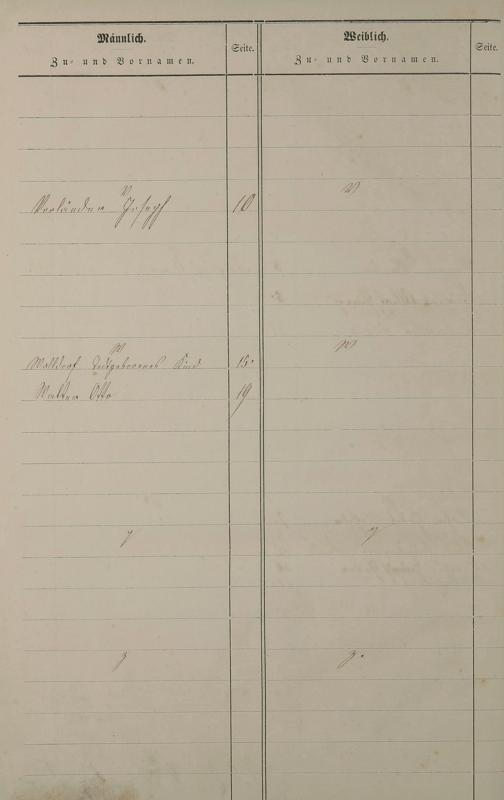 Männlich.
Zu- und Vornamen.
Seite.
Weiblich.
Zu- und Vornamen.
Seite.
V
V
Vorländer Joseph 10
W
W
Walldorf Todtgeborenes Kind 15
Walter Otto 19
Y
Y
Z
Z.